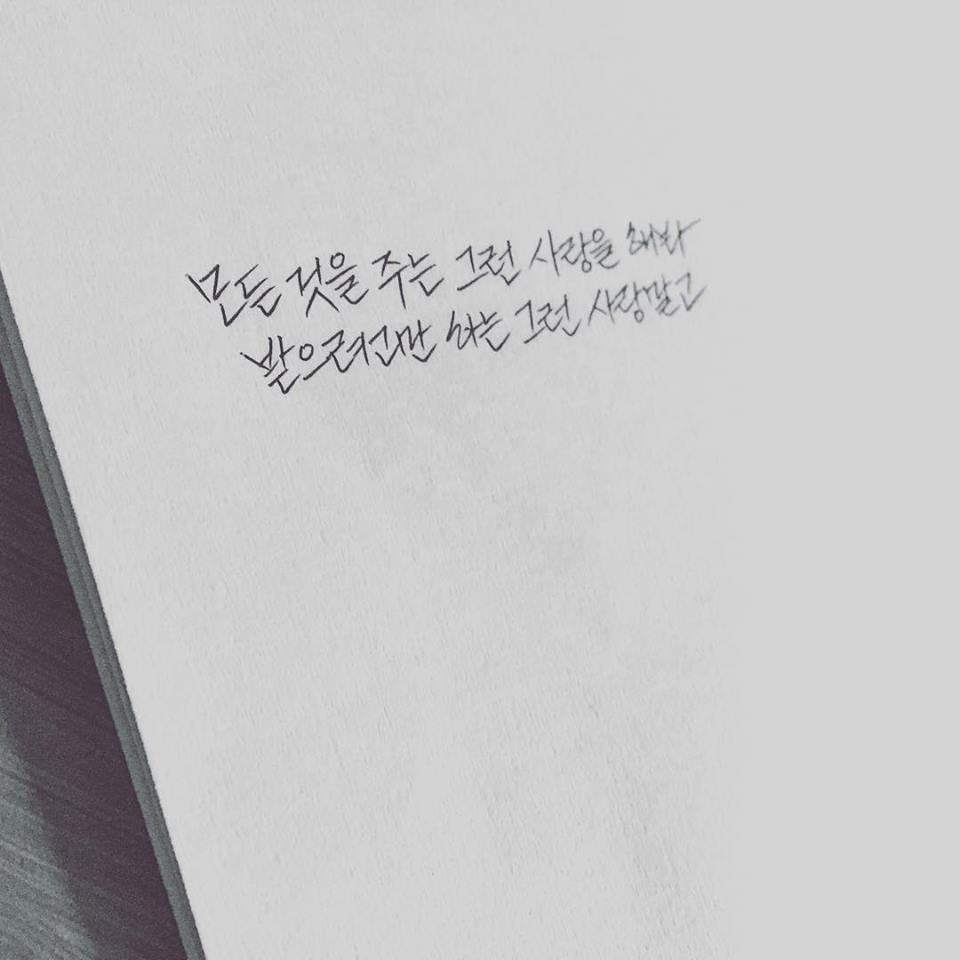 모든 것을 주는 그런 사랑을 해봐
받으려고만 하는 그런 사랑말고